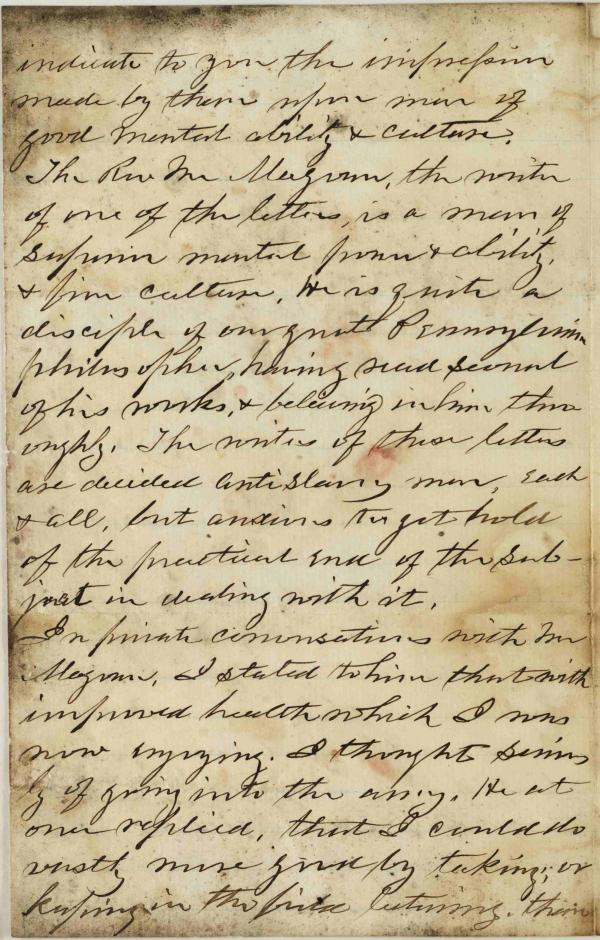 indicate to you the impression
made by them upon men of
good mental ability & culture.
The Rev Mr Magoun, the writer
of one of the letters, is a man of
superior mental power & ability,
& fine culture, He is quite a
disciple of our great Pennsylvania
philosopher, having read several
of his works, & believing in him thor
oughly. The writers of these letters
are decided antislavery men, each
& all, but anxious to get hold
of the practical end of the sub-
ject in dealing with it.
In private conversations with Mr
Magoun, I stated to him that with
improved health which I was
now enjoying. I thought serious
ly of going into the army. He at
once replied, that I could do
vastly more good by taking, or
keeping in the field lecturing, than